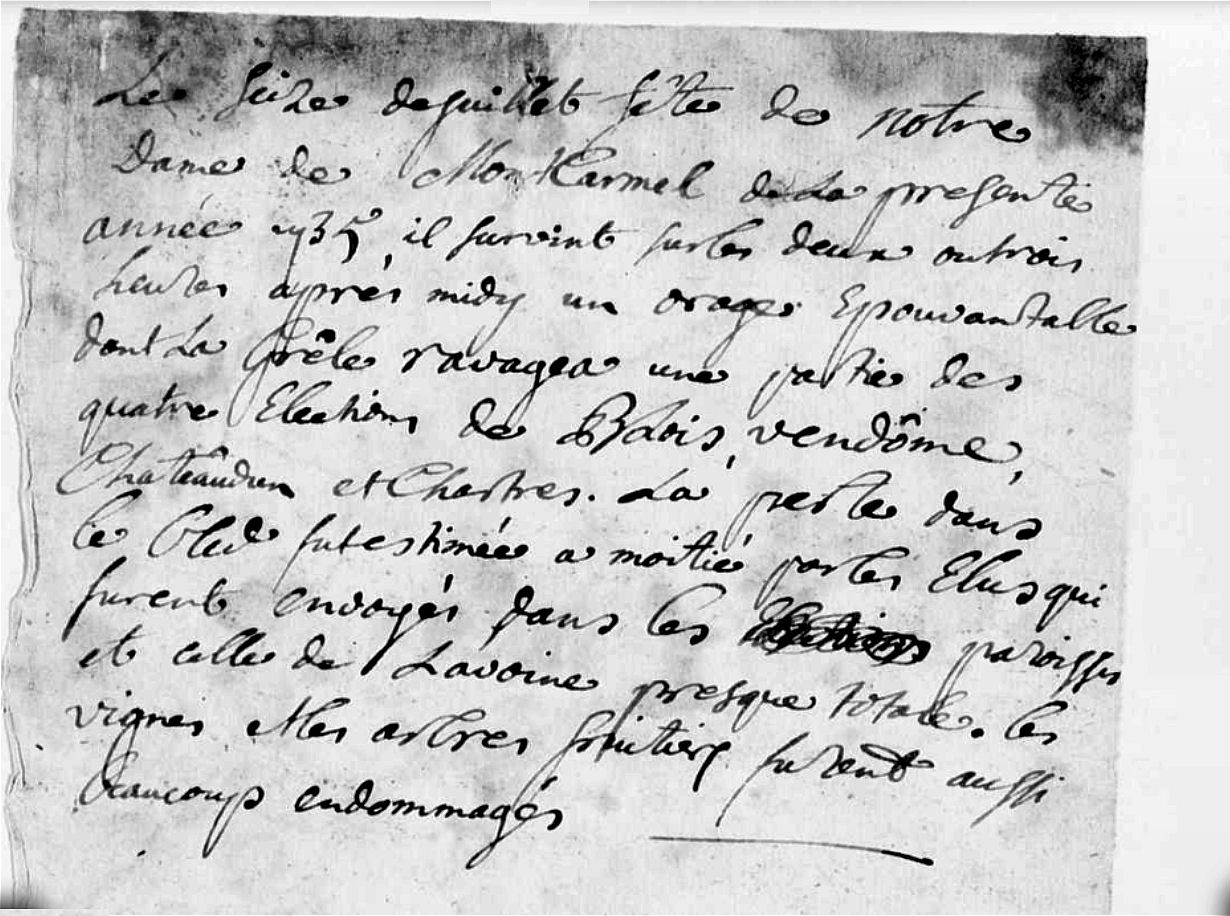 Le seize de juillet fête de notre
Dame de MontKarmel de La presente
année 1735, il survint sur les deux ou trois
heures aprés midy un orage Epouvantalble
dont La Grêle ravagea une partie des
quatre Elections de BLois, vendôme,
Chateâudun et Chartres. La perte dans
le bled fut estimée a moitié par les Elus qui
furent envoyés dans les paroisses
et celle de Lavoine presque totale. les
vignes et les arbres fruitiers furent aussi
beaucoup endommagés